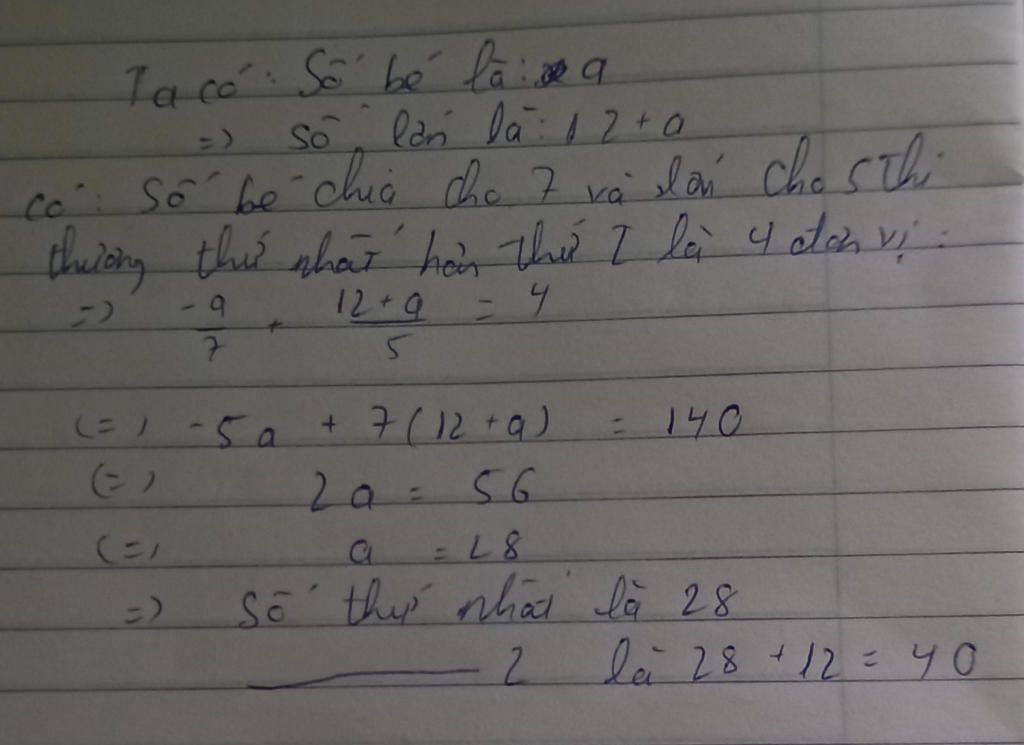 Ta có: Số bé là: a
=> số lớn là: 12 + a
có: Số bé chia cho 7 và lớn cho 5 thì
thương thứ nhất hơn thứ 2 là 4 đơn vị:
=> -a/7 + (12 + a)/5 = 4
(=) -5a + 7(12 + a) = 140
(=) 2a = 56
(=) a = 28
=> Số thứ nhất là 28
——— 2 là 28 + 12 = 40